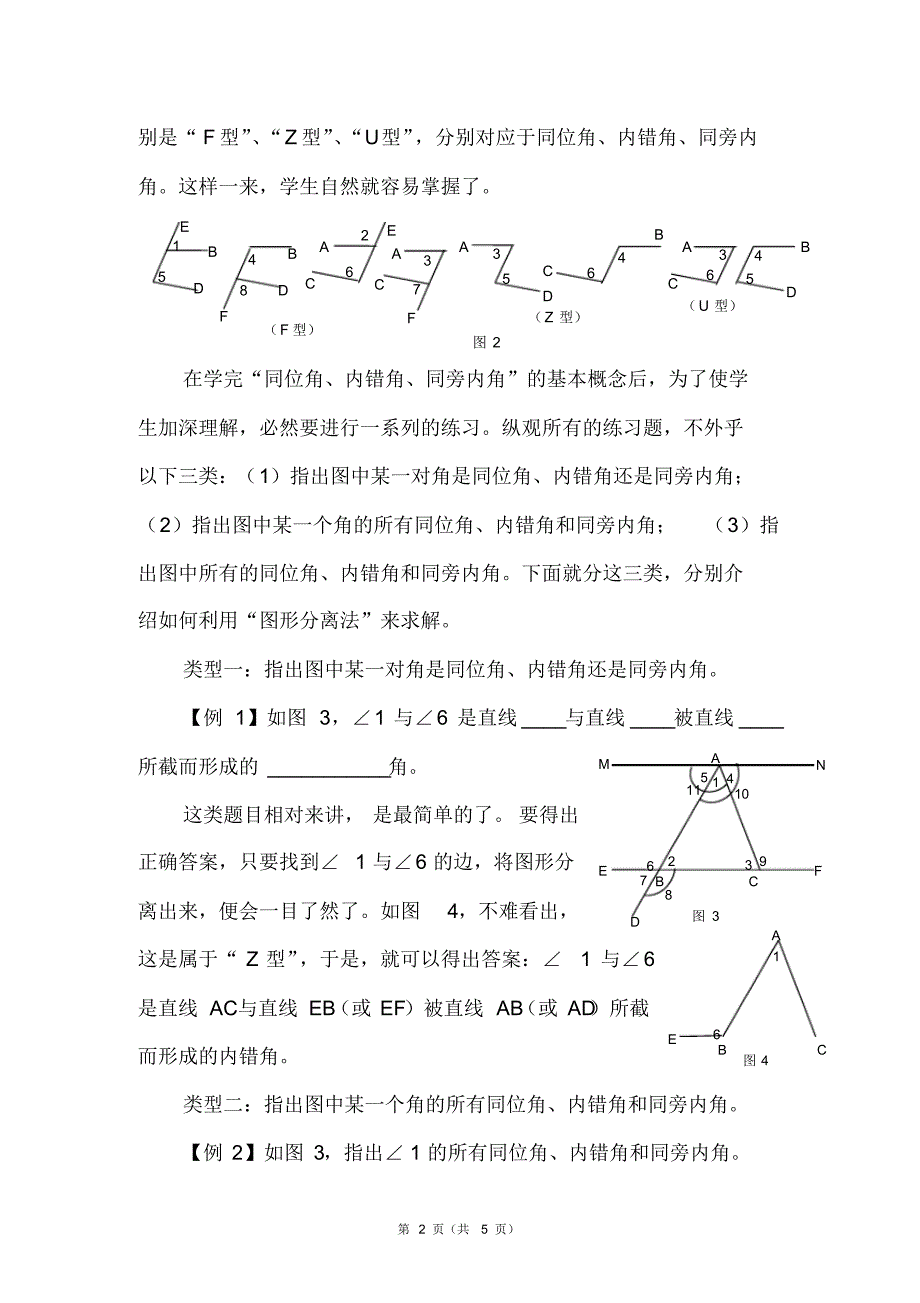 别是“F型”、“Z型”、“U型”，分别对应于同位角、内错角、同旁内
角。这样一来，学生自然就容易掌握了。
E 1 B 5 D
4 B 8 D F
（F 型）
A 2 E C 6
A 3 C 7 F
A 3 5 D
B C 6 4
（Z 型）
A 3 C 6
4 B 5 D
（U 型）
图 2
在学完“同位角、内错角、同旁内角”的基本概念后，为了使学
生加深理解，必然要进行一系列的练习。纵观所有的练习题，不外乎
以下三类：（1）指出图中某一对角是同位角、内错角还是同旁内角；
（2）指出图中某一个角的所有同位角、内错角和同旁内角； （3）指
出图中所有的同位角、内错角和同旁内角。下面就分这三类，分别介
绍如何利用“图形分离法”来求解。
类型一：指出图中某一对角是同位角、内错角还是同旁内角。
【例 1】如图 3，∠1 与∠6 是直线 ____与直线 ____被直线 ____
所截而形成的 ___________角。
这类题目相对来讲， 是最简单的了。 要得出
正确答案，只要找到∠ 1 与∠6 的边，将图形分
离出来，便会一目了然了。如图 4，不难看出，
这是属于“ Z 型”，于是，就可以得出答案：∠ 1 与∠6
是直线 AC与直线 EB（或 EF）被直线 AB（或 AD）所截
而形成的内错角。
M A N
5 1 4
11 10
E 6 2 3 9 F
7 B C
8
D
图 3
A
1
E 6
B C
图 4
类型二：指出图中某一个角的所有同位角、内错角和同旁内角。
【例 2】如图 3，指出∠ 1 的所有同位角、内错角和同旁内角。
第 2 页（共 5 页）